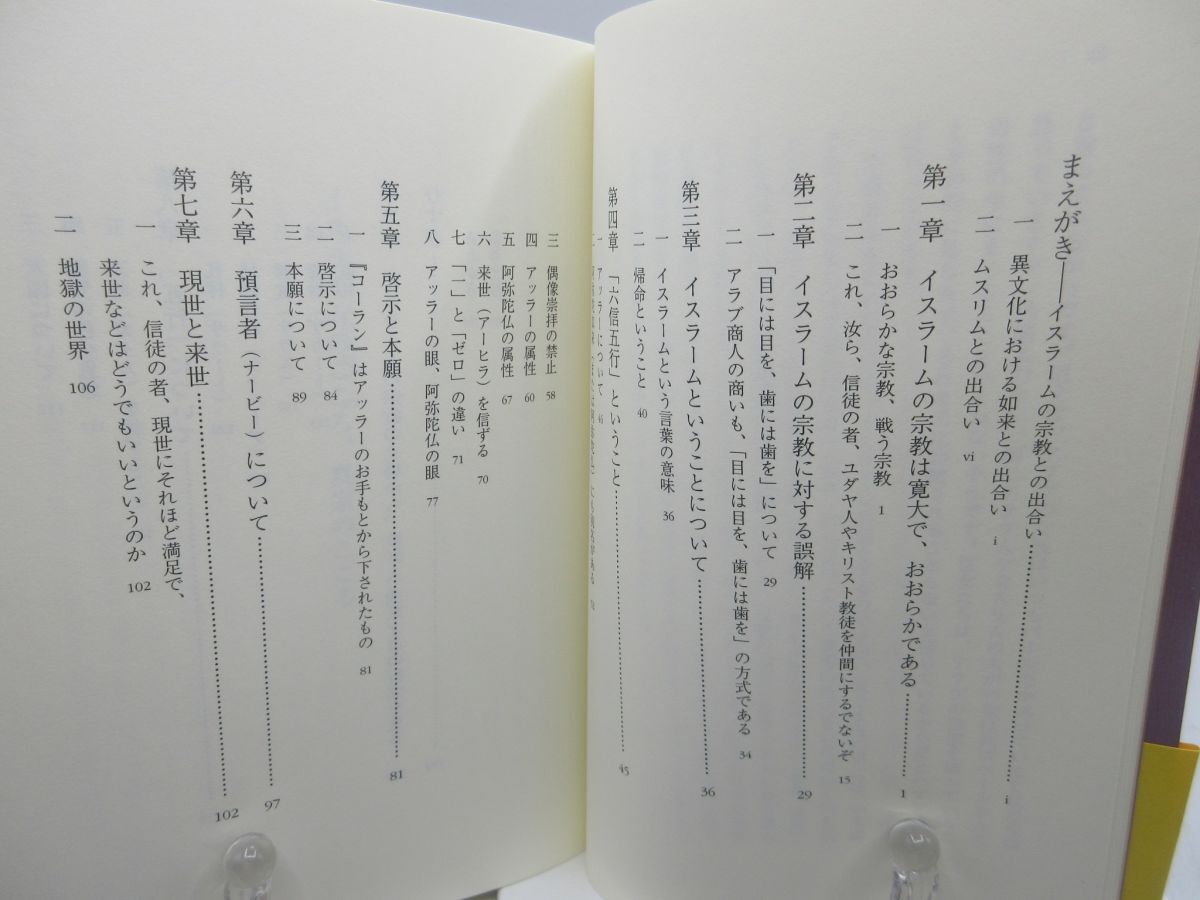 まえがき――イスラームの宗教との出合い……………… i
一 異文化における如来との出合い i
二 ムスリムとの出合い vi
第一章 イスラームの宗教は寛大で、おおらかである……… 1
一 おおらかな宗教、戦う宗教 1
二 これ、汝ら、信徒の者、ユダヤ人やキリスト教徒を仲間にするでないぞ 15
第二章 イスラームの宗教に対する誤解……………… 29
一 「目には目を、歯には歯を」について 29
二 アラブ商人の商いも、「目には目を、歯には歯を」の方式である 34
第三章 イスラームということについて……………… 36
一 イスラームという言葉の意味 36
二 帰命ということ 40
第四章 「六信五行」ということ……………… 45
一 アッラーについて
三 偶像崇拝の禁止 58
四 アッラーの属性 60
五 阿弥陀仏の属性 67
六 来世(アーヒラ)を信ずる 70
七 「一」と「ゼロ」の違い 71
八 アッラーの眼、阿弥陀仏の眼 77
第五章 啓示と本願……………… 81
一 『コーラン』はアッラーのお手もとから下されたもの 81
二 啓示について 84
三 本願について 89
第六章 預言者(ナービー)について……………… 97
第七章 現世と来世……………… 102
一 これ、信徒の者、現世にそれほど満足で、
来世などはどうでもいいというのか 102
二 地獄の世界 106